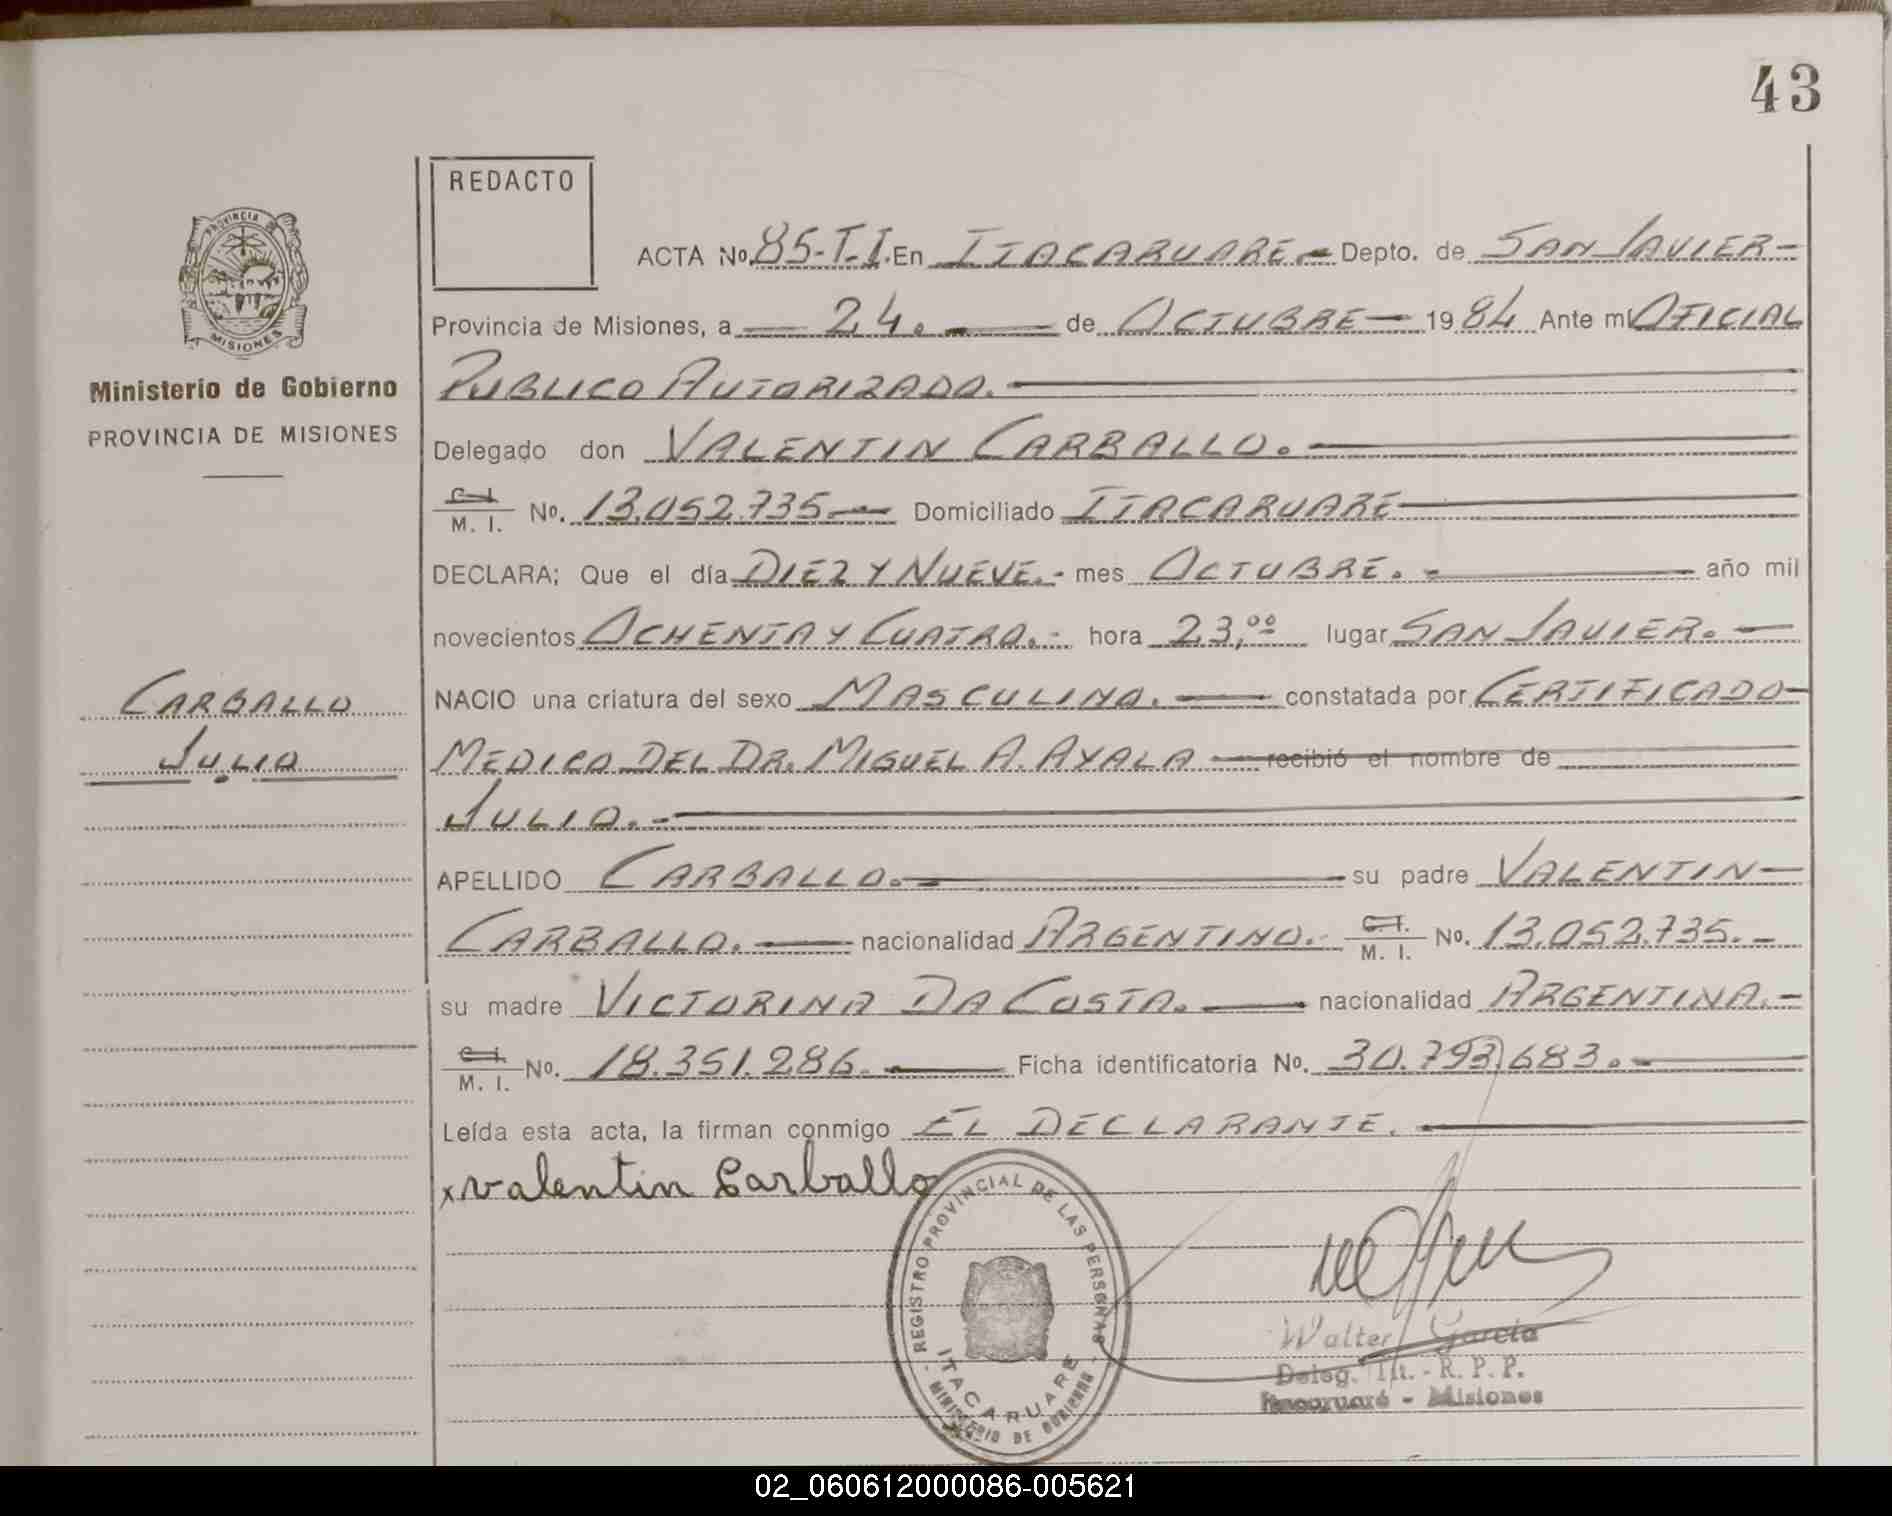 43
REDACTO
PROVINCIA DE
MISIONES
Ministerio de Gobierno
PROVINCIA DE MISIONES
CARBALLO
JULIO
ACTA No. 85-T.I. En ITACARUARE.- Depto. de SAN JAVIER-
Provincia de Misiones, a 24. de OCTUBRE 1984 Ante mí OFICIAL
PUBLICO AUTORIZADO.
Delegado don VALENTIN CARBALLO.
C.I. M. I. No. 13.052.735.- Domiciliado ITACARUARE
DECLARA; Que el día DIEZ Y NUEVE.- mes OCTUBRE.- año mil
novecientos OCHENTA Y CUATRO.- hora 23,00 lugar SAN JAVIER.-
NACIO una criatura del sexo MASCULINO.- constatada por CERTIFICADO
MEDICO DEL DR. MIGUEL A. AYALA recibió el nombre de
JULIO.-
APELLIDO CARBALLO.- su padre VALENTIN
CARBALLO. nacionalidad ARGENTINO.- C.I. M. I. No. 13.052.735.-
su madre VICTORINA DA COSTA. nacionalidad ARGENTINA.-
C.I. M. I. No. 18.351.286. Ficha identificatoria No. 30.793.683.-
Leída esta acta, la firman conmigo EL DECLARANTE.
x Valentin Carballo
REGISTRO PROVINCIAL DE LAS PERSONAS
ITACARUARE
- MINISTERIO DE GOBIERNO -
Walter García
Deleg. Tit. - R. P. P.
Itacaruaré - Misiones
02_060612000086-005621